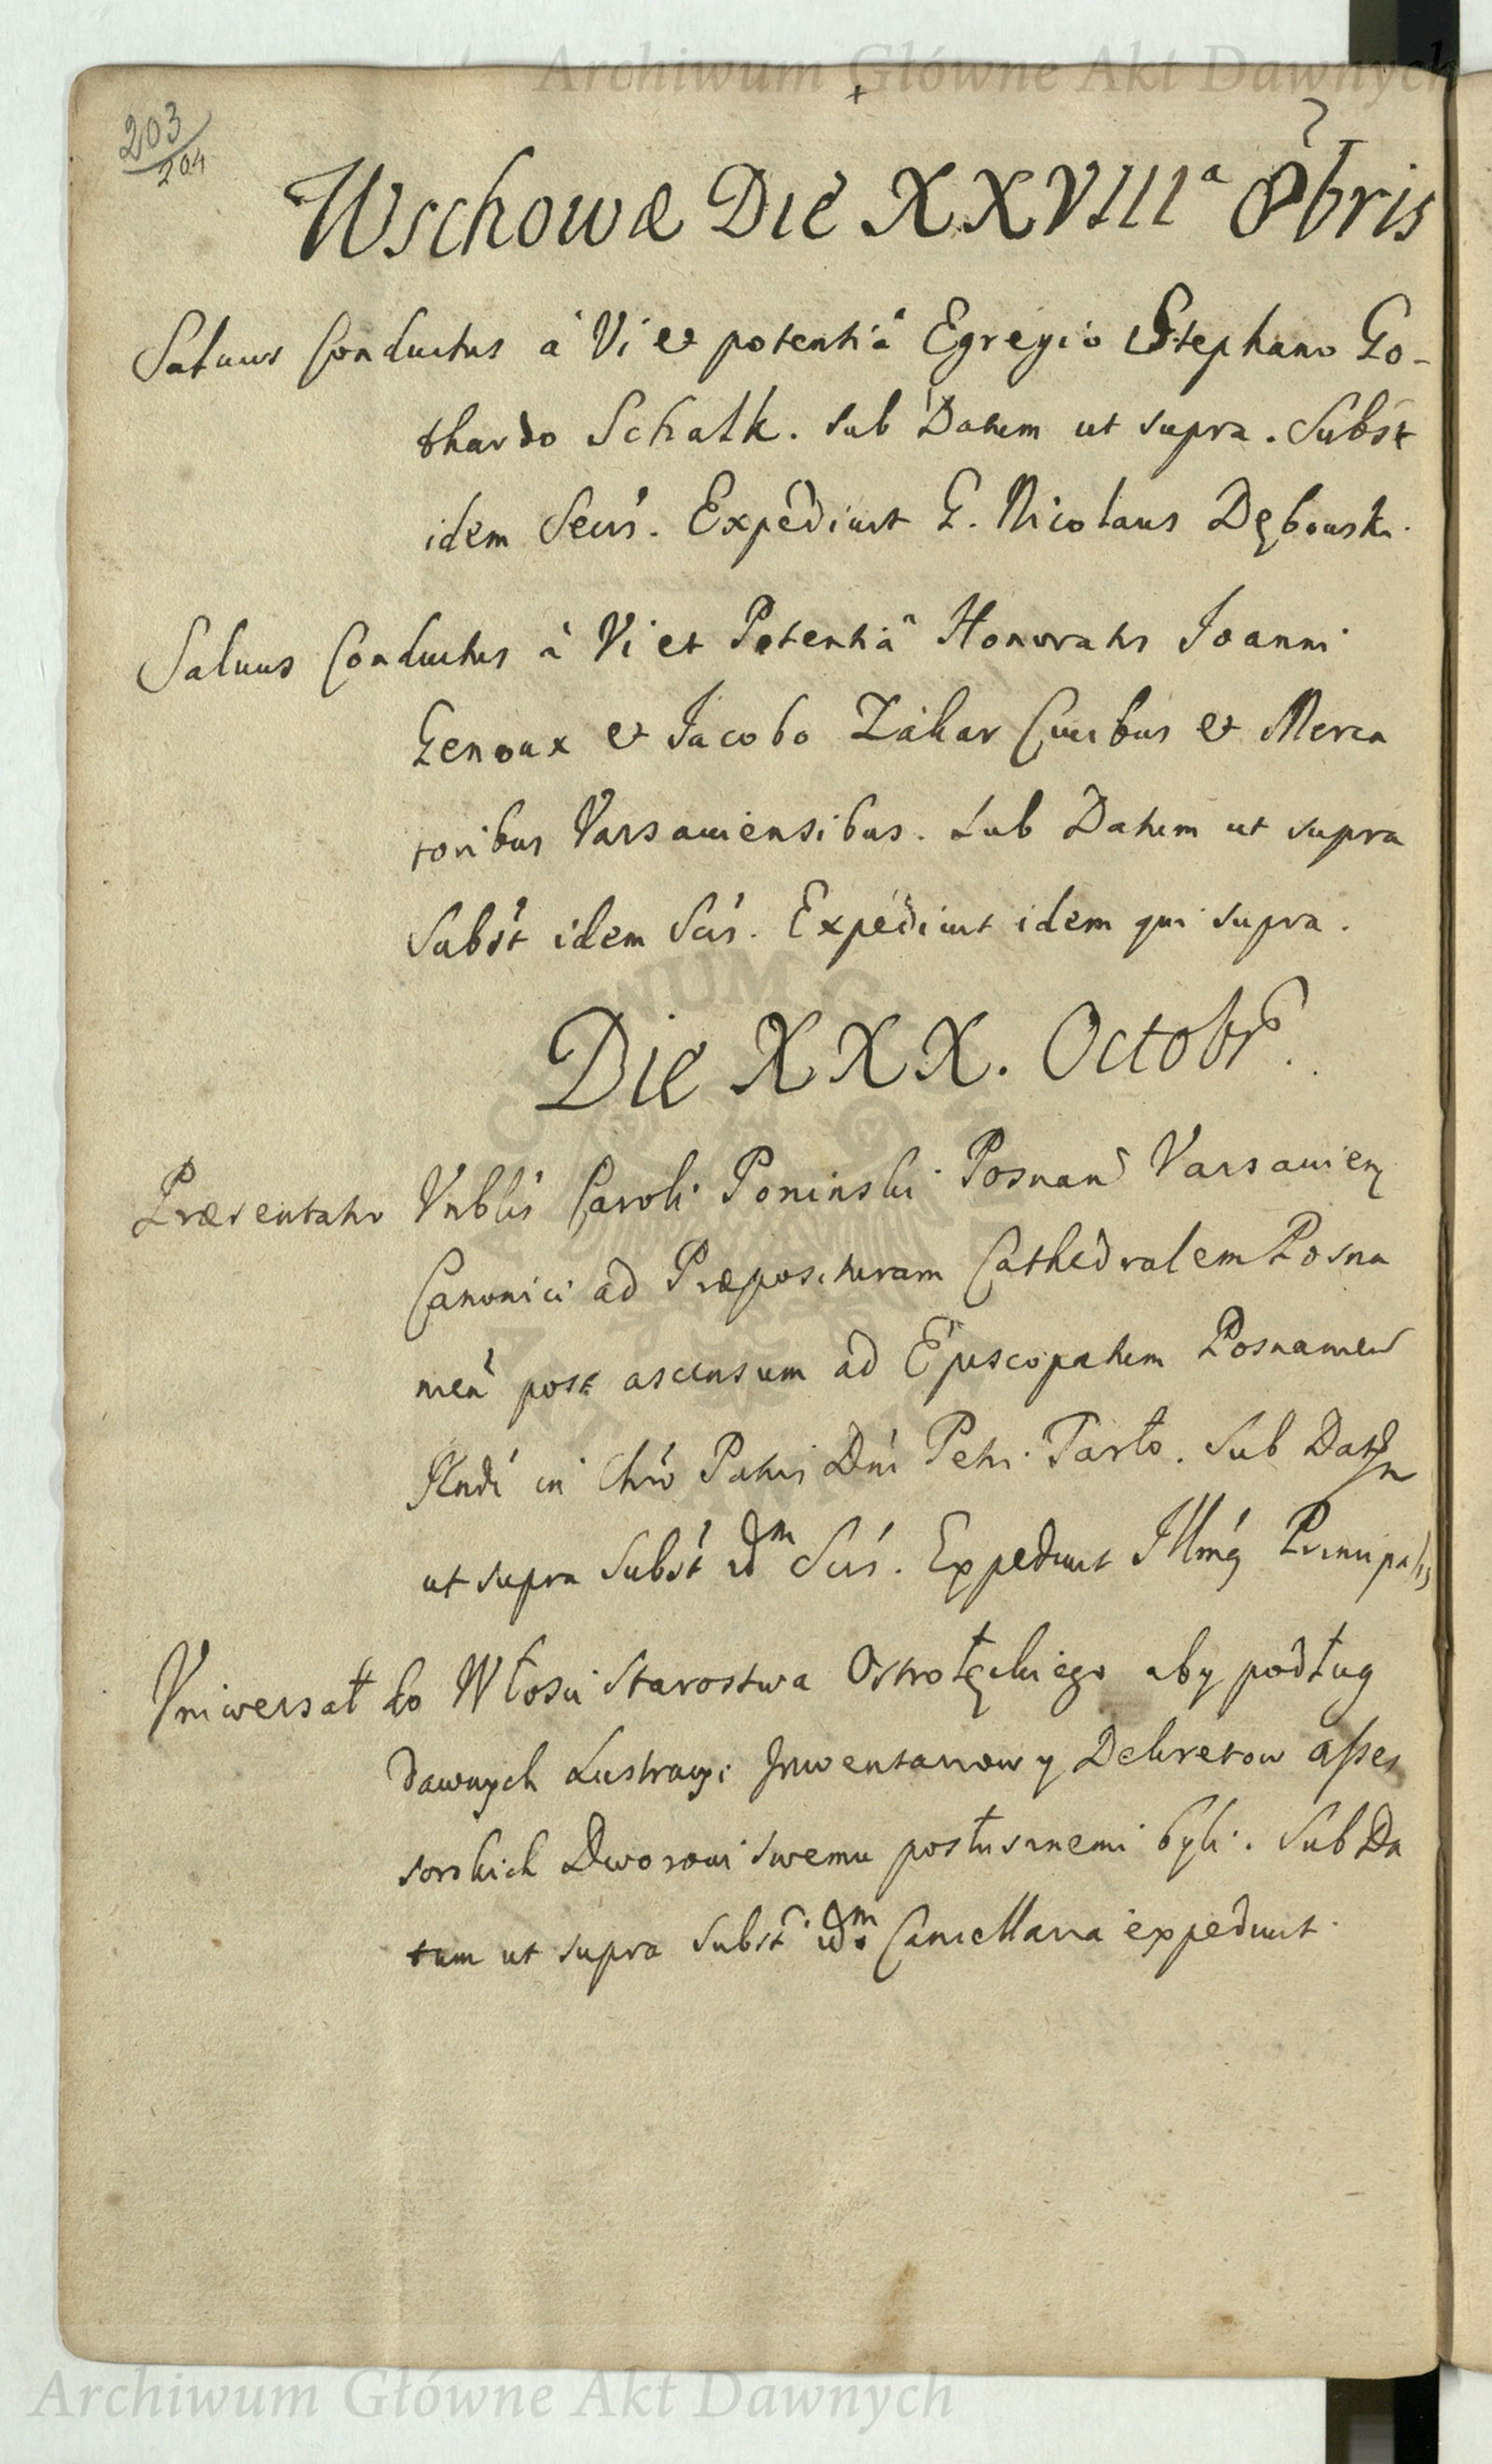 Archiwum Główne Akt Dawnych
203
204
Wschowæ Die XXVIIIª 8bris
Saluus Conductus à Vi et potentiâ Egregio Stephano Go-
thardo Schalk. Sub Datum ut supra. Subst
idem Secrs. Expediunt G. Nicolaus Dębowski.
Saluus Conductus à Vi et Potentiâ Honoratis Joanni
Genoux et Jacobo Zakar Ciuibus et Merca
toribus Varsauiensibus. Sub Datum ut supra
Subst idem Scrs. Expediunt idem qui supra.
Die XXX. Octobr.
Præsentatio Vnblis Caroli Poninski Posnan Varsauien
Canonici ad Præposituram Cathedralem Posna
nien post ascensum ad Episcopatum Posnanien
Rndi in Chro Patris Dni Petri Tarło. Sub Datum
ut supra Subst idm Scrs. Expediunt Illmg Principalis
Vniwersał do Włosci Starostwa Ostrołęckiego aby podług
dawnych Lustracyi Jnwentarzow y Dekretow asses
sorskich Dworowi swemu posłusznemi byli. Sub Da
tum ut supra Subst idm Cancellaria expediunt
Archiwum Główne Akt Dawnych